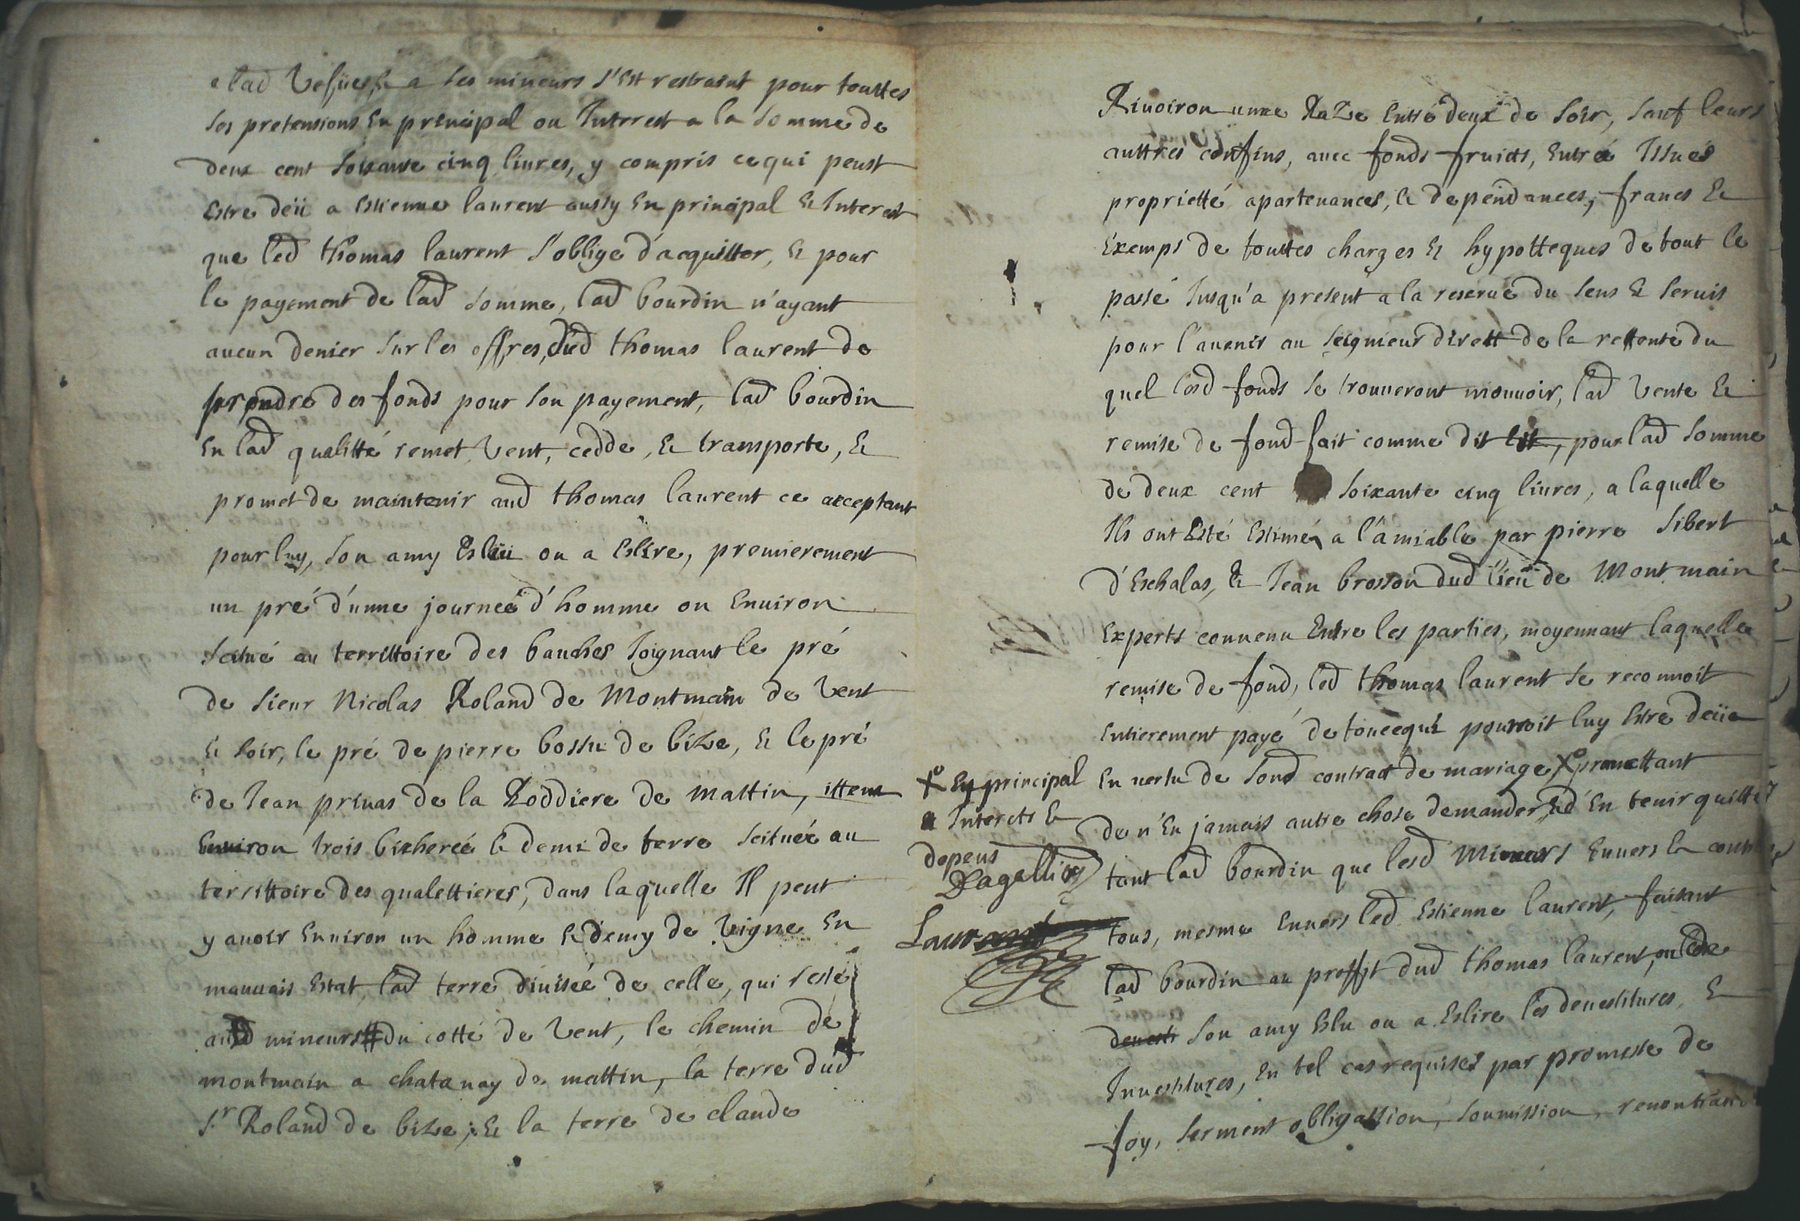 a lad Vefüe, & a ses mineurs s'est restraint pour touttes
ses pretensions en principal ou Interest a la Somme de
deux cent soixante cinq livres, y compris ce qui peust
Estre deü a Estienne laurent aussy en principal & Interest
que led thomas laurent s'oblige d'acquitter, & pour
le payement de lad somme, lad bourdin n'ayant
aucun denier sur les offres, dud thomas laurent de
prendre des fonds pour son payement, lad bourdin
En lad qualitté remet, vent, cedde, & transporte, &
promet de maintenir aud thomas laurent ce acceptant
pour luy, son amy Esleü ou a Eslire, premierement
un pré d'unne journeé d'homme ou Environ
scitué au territtoire des bauches Joignant le pré
de sieur Nicolas Roland de Montmain de vent
& soir, le pré de pierre bossu de bize, & le pré
de Jean privas de la Roddiere de mattin, ittem
Environ trois bicherée & demi de terre scituée au
territtoire des qualettieres, dans laquelle Il peut
y avoir Environ un homme & demy de vigne En
mauvais Estat, lad terre divisée de celle, qui reste
aud mineurs du cotté de vent, le chemin de
montmain a chatanay de mattin, la terre dud
Sr Roland de bize, & la terre de claude
Rivoiron unne Raze Entre deux de soir, sauf leurs
auttres confins, avec fonds fruits, Entré Issues
proprietté apartenances, & dependances, francs &
Exemps de touttes charges & hypotteques de tout le
passé Jusqu'a present a la reserve du sens & servis
pour l'avenir au seignieur dirett de la rettente du
quel lesd fonds se trouveront mouvoir, lad vente &
remise de fond fait comme dit Est, pour lad somme
de deux cent soixante cinq livres, a laquelle
Ils ont Esté Estimés a l'amiable par pierre sibert
d'Eschalas, & Jean brosson dud lieu de Montmain
Experts convenu Entre les parties, moyennant laquelle
remise de fond, led thomas laurent se reconnoit
Entierement payé de tout ce qui pourroit luy Estre deüe
En vertu de sond contract de mariage X° promettant
X° En principal
Interets &
depens
Ragellion
Laurent
de n'En jamais autre chose demander, & d'En tenir quitte
tant lad bourdin que lesd Mineurs Envers & contre
tous, mesme Envers led Estienne laurent, faisant
lad bourdin au proffit dud thomas laurent, ou de
son amy Eslu ou a Eslire les devestitures &
Investitures, En tel cas requises par promesse de
foy, serment obligattion, soumission, renontiation